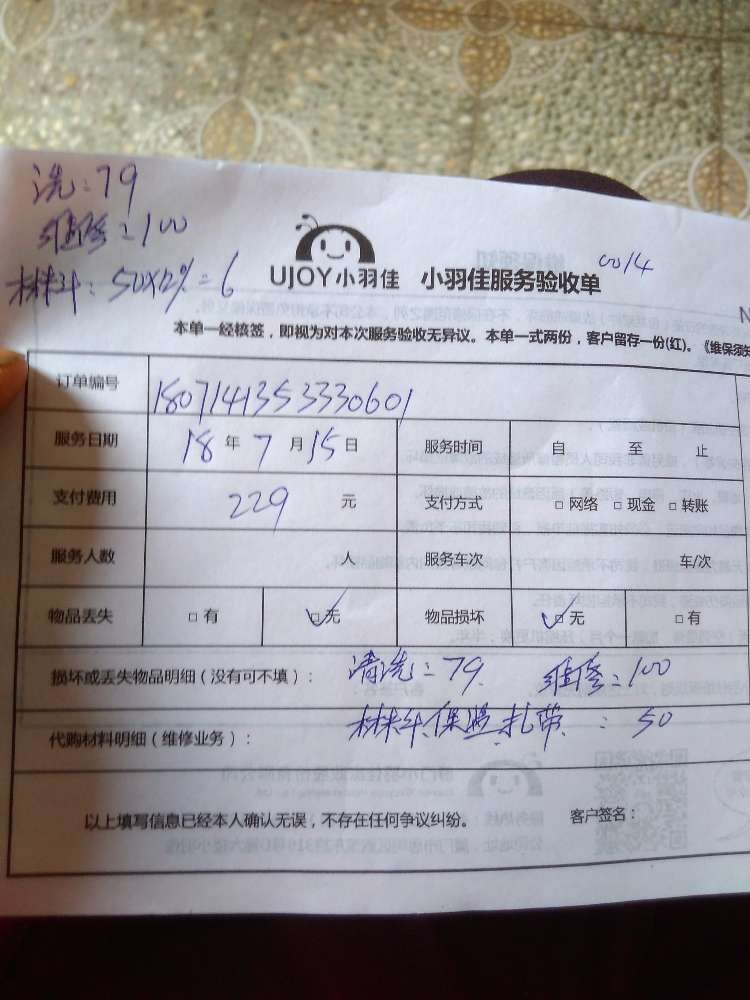 洗:79
维修:100
材料:50X12%=6
UJOY小羽佳 小羽佳服务验收单 0014
N
本单一经核签，即视为对本次服务验收无异议。本单一式两份，客户留存一份(红)。《维保须知
订单编号 1807141353330601
服务日期 18年7月15日 服务时间 自 至 止
支付费用 229 元 支付方式 □网络 □现金 □转账
服务人数 人 服务车次 车/次
物品丢失 □有 ☑无 物品损坏 ☑无 □有
损坏或丢失物品明细（没有可不填）： 清洗:79. 维修:100
代购材料明细（维修业务）： 材料.保温.扎带:50
以上填写信息已经本人确认无误，不存在任何争议纠纷。 客户签名：